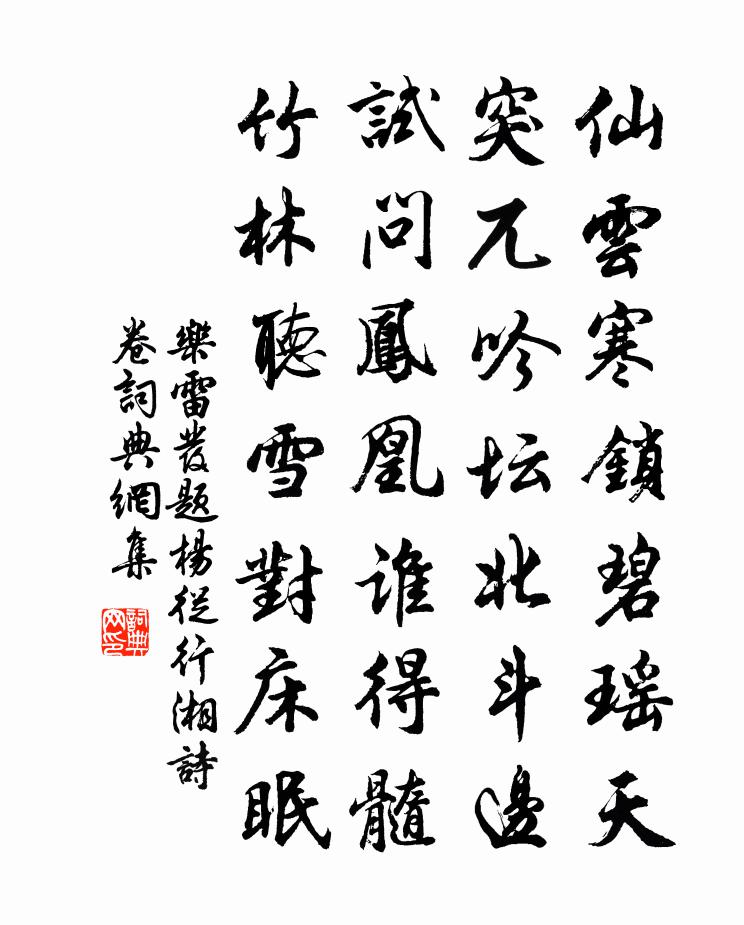 仙雲寒鎖碧瑶天
突兀吟坛北斗邊
試問鳳凰誰得髓
竹林聽雪對床眠
樂雷發题楊從行湘詩
卷詞典網集
詞典網印